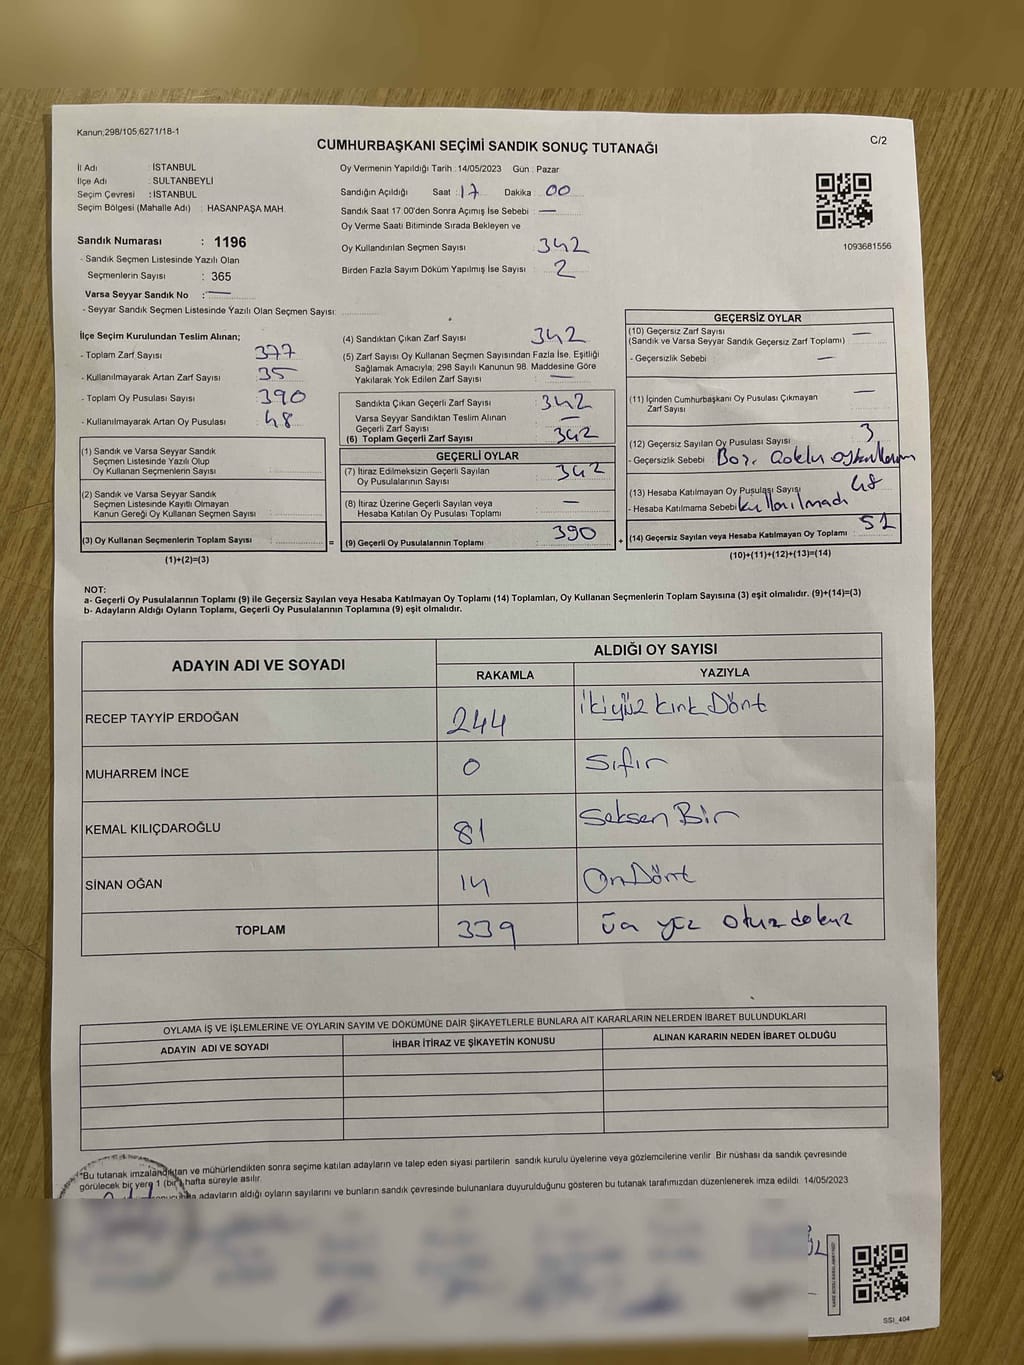 Kanun;298/105,6271/18-1
C/2
CUMHURBAŞKANI SEÇİMİ SANDIK SONUÇ TUTANAĞI
İl Adı : İSTANBUL
İlçe Adı : SULTANBEYLİ
Seçim Çevresi : İSTANBUL
Seçim Bölgesi (Mahalle Adı) : HASANPAŞA MAH.
Sandık Numarası : 1196
- Sandık Seçmen Listesinde Yazılı Olan
Seçmenlerin Sayısı : 365
Varsa Seyyar Sandık No : —
- Seyyar Sandık Seçmen Listesinde Yazılı Olan Seçmen Sayısı:
Oy Vermenin Yapıldığı Tarih :14/05/2023 Gün : Pazar
Sandığın Açıldığı Saat : 17 Dakika : 00
Sandık Saat 17:00'den Sonra Açımış İse Sebebi : —
Oy Verme Saati Bitiminde Sırada Bekleyen ve
Oy Kullandırılan Seçmen Sayısı : 342
Birden Fazla Sayım Döküm Yapılmış İse Sayısı : 2
1093681556
İlçe Seçim Kurulundan Teslim Alınan;
- Toplam Zarf Sayısı : 377
- Kullanılmayarak Artan Zarf Sayısı : 35
- Toplam Oy Pusulası Sayısı : 390
- Kullanılmayarak Artan Oy Pusulası : 48
(1) Sandık ve Varsa Seyyar Sandık
Seçmen Listesinde Yazılı Olup
Oy Kullanan Seçmenlerin Sayısı :
(2) Sandık ve Varsa Seyyar Sandık
Seçmen Listesinde Kayıtlı Olmayan
Kanun Gereği Oy Kullanan Seçmen Sayısı :
(3) Oy Kullanan Seçmenlerin Toplam Sayısı :
(1)+(2)=(3)
=
(4) Sandıktan Çıkan Zarf Sayısı : 342
(5) Zarf Sayısı Oy Kullanan Seçmen Sayısından Fazla İse, Eşitliği
Sağlamak Amacıyla; 298 Sayılı Kanunun 98. Maddesine Göre
Yakılarak Yok Edilen Zarf Sayısı : —
Sandıkta Çıkan Geçerli Zarf Sayısı : 342
Varsa Seyyar Sandıktan Teslim Alınan
Geçerli Zarf Sayısı : —
(6) Toplam Geçerli Zarf Sayısı : 342
GEÇERLİ OYLAR
(7) İtiraz Edilmeksizin Geçerli Sayılan
Oy Pusulalarının Sayısı : 342
(8) İtiraz Üzerine Geçerli Sayılan veya
Hesaba Katılan Oy Pusulası Toplamı : —
(9) Geçerli Oy Pusulalarının Toplamı : 390
+
GEÇERSİZ OYLAR
(10) Geçersiz Zarf Sayısı : —
(Sandık ve Varsa Seyyar Sandık Geçersiz Zarf Toplamı)
- Geçersizlik Sebebi : —
(11) İçinden Cumhurbaşkanı Oy Pusulası Çıkmayan
Zarf Sayısı : —
(12) Geçersiz Sayılan Oy Pusulası Sayısı : 3
- Geçersizlik Sebebi :
(13) Hesaba Katılmayan Oy Pusulası Sayısı : 48
- Hesaba Katılmama Sebebi: kullanılmadı
(14) Geçersiz Sayılan veya Hesaba Katılmayan Oy Toplamı : 51
(10)+(11)+(12)+(13)=(14)
NOT:
a- Geçerli Oy Pusulalarının Toplamı (9) ile Geçersiz Sayılan veya Hesaba Katılmayan Oy Toplamı (14) Toplamları, Oy Kullanan Seçmenlerin Toplam Sayısına (3) eşit olmalıdır. (9)+(14)=(3)
b- Adayların Aldığı Oyların Toplamı, Geçerli Oy Pusulalarının Toplamına (9) eşit olmalıdır.
ADAYIN ADI VE SOYADI
ALDIĞI OY SAYISI
RAKAMLA YAZIYLA
RECEP TAYYİP ERDOĞAN 244 ikiyüz kırk Dört
MUHARREM İNCE 0 Sıfır
KEMAL KILIÇDAROĞLU 81 Seksen Bir
SİNAN OĞAN 14 On Dört
TOPLAM 339 üç yüz otuz dokuz
OYLAMA İŞ VE İŞLEMLERİNE VE OYLARIN SAYIM VE DÖKÜMÜNE DAİR ŞİKAYETLERLE BUNLARA AİT KARARLARIN NELERDEN İBARET BULUNDUKLARI
ADAYIN ADI VE SOYADI İHBAR İTİRAZ VE ŞİKAYETİN KONUSU ALINAN KARARIN NEDEN İBARET OLDUĞU
*Bu tutanak imzalandıktan ve mühürlendikten sonra seçime katılan adayların ve talep eden siyasi partilerin sandık kurulu üyelerine veya gözlemcilerine verilir. Bir nüshası da sandık çevresinde
görülecek bir yere 1 (bir) hafta süreyle asılır.
adayların aldığı oyların sayılarını ve bunların sandık çevresinde bulunanlara duyurulduğunu gösteren bu tutanak tarafımızdan düzenlenerek imza edildi. 14/05/2023
SSI_404